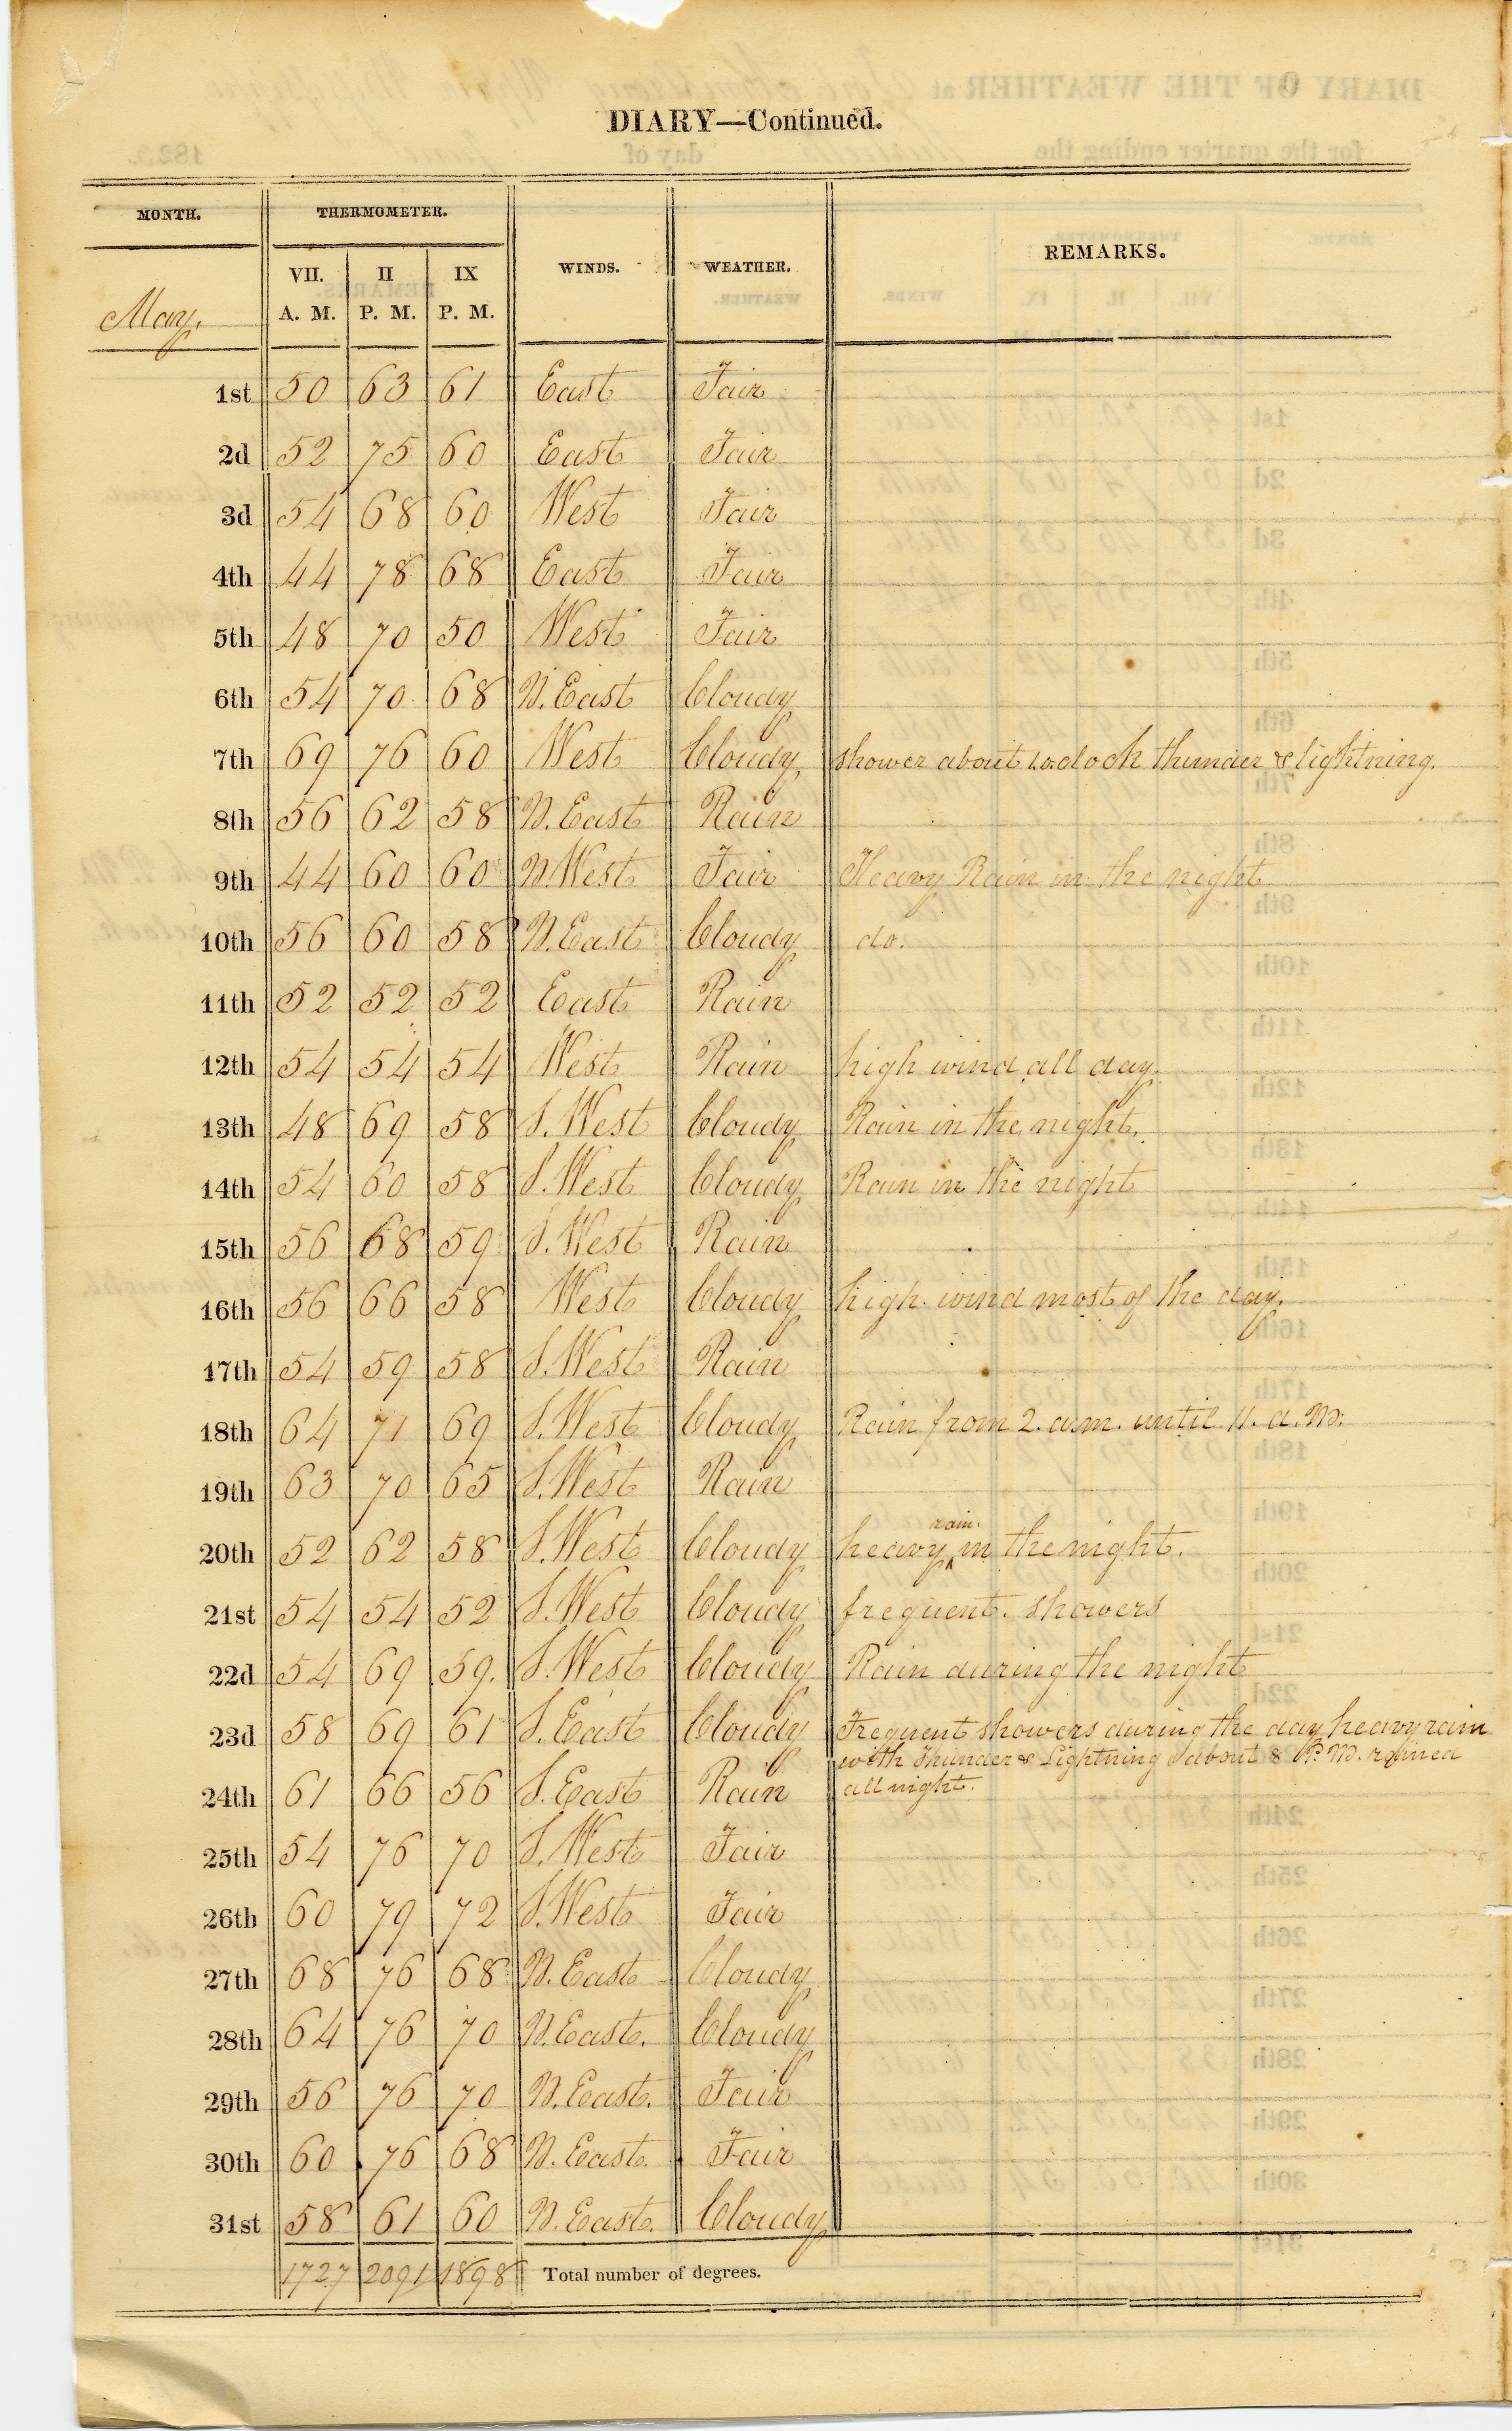 DIARY—Continued.
MONTH. THERMOMETER. WINDS. WEATHER. REMARKS.
May. VII. A. M. II P. M. IX P. M.
1st 50 63 61 East Fair
2d 52 75 60 East Fair
3d 54 68 60 West Fair
4th 44 78 68 East Fair
5th 48 70 50 West Fair
6th 54 70 68 N. East Cloudy
7th 69 76 60 West Cloudy shower about oclock thunder & lightning.
8th 56 62 58 N. East Rain
9th 44 60 60 N. West Fair Heavy Rain in the night
10th 56 60 58 N. East Cloudy do.
11th 52 52 52 East Rain
12th 54 54 54 West Rain high wind all day
13th 48 69 58 S. West Cloudy Rain in the night.
14th 54 60 58 S. West Cloudy Rain in the night
15th 56 68 59 S. West Rain
16th 56 66 58 West Cloudy high wind most of the day.
17th 54 59 58 S. West Rain
18th 64 71 69 S. West Cloudy Rain from 2. a.m. until 11. a. M.
19th 63 70 65 S. West Rain
20th 52 62 58 S. West Cloudy heavy rain in the night.
21st 54 54 52 S. West Cloudy frequent showers
22d 54 69 59. S. West Cloudy Rain during the night
23d 58 69 61 S. East Cloudy Frequent showers during the day heavy rain
with Thunder & Lightning about 8 P. M. rained
24th 61 66 56 S. East Rain all night.
25th 54 76 70 S. West Fair
26th 60 79 72 S. West Fair
27th 68 76 68 N. East Cloudy
28th 64 76 70 N. East. Cloudy
29th 56 76 70 N. East. Fair
30th 60 76 68 N. East. Fair
31st 58 61 60 N. East. Cloudy
1727 2091 1898 Total number of degrees.